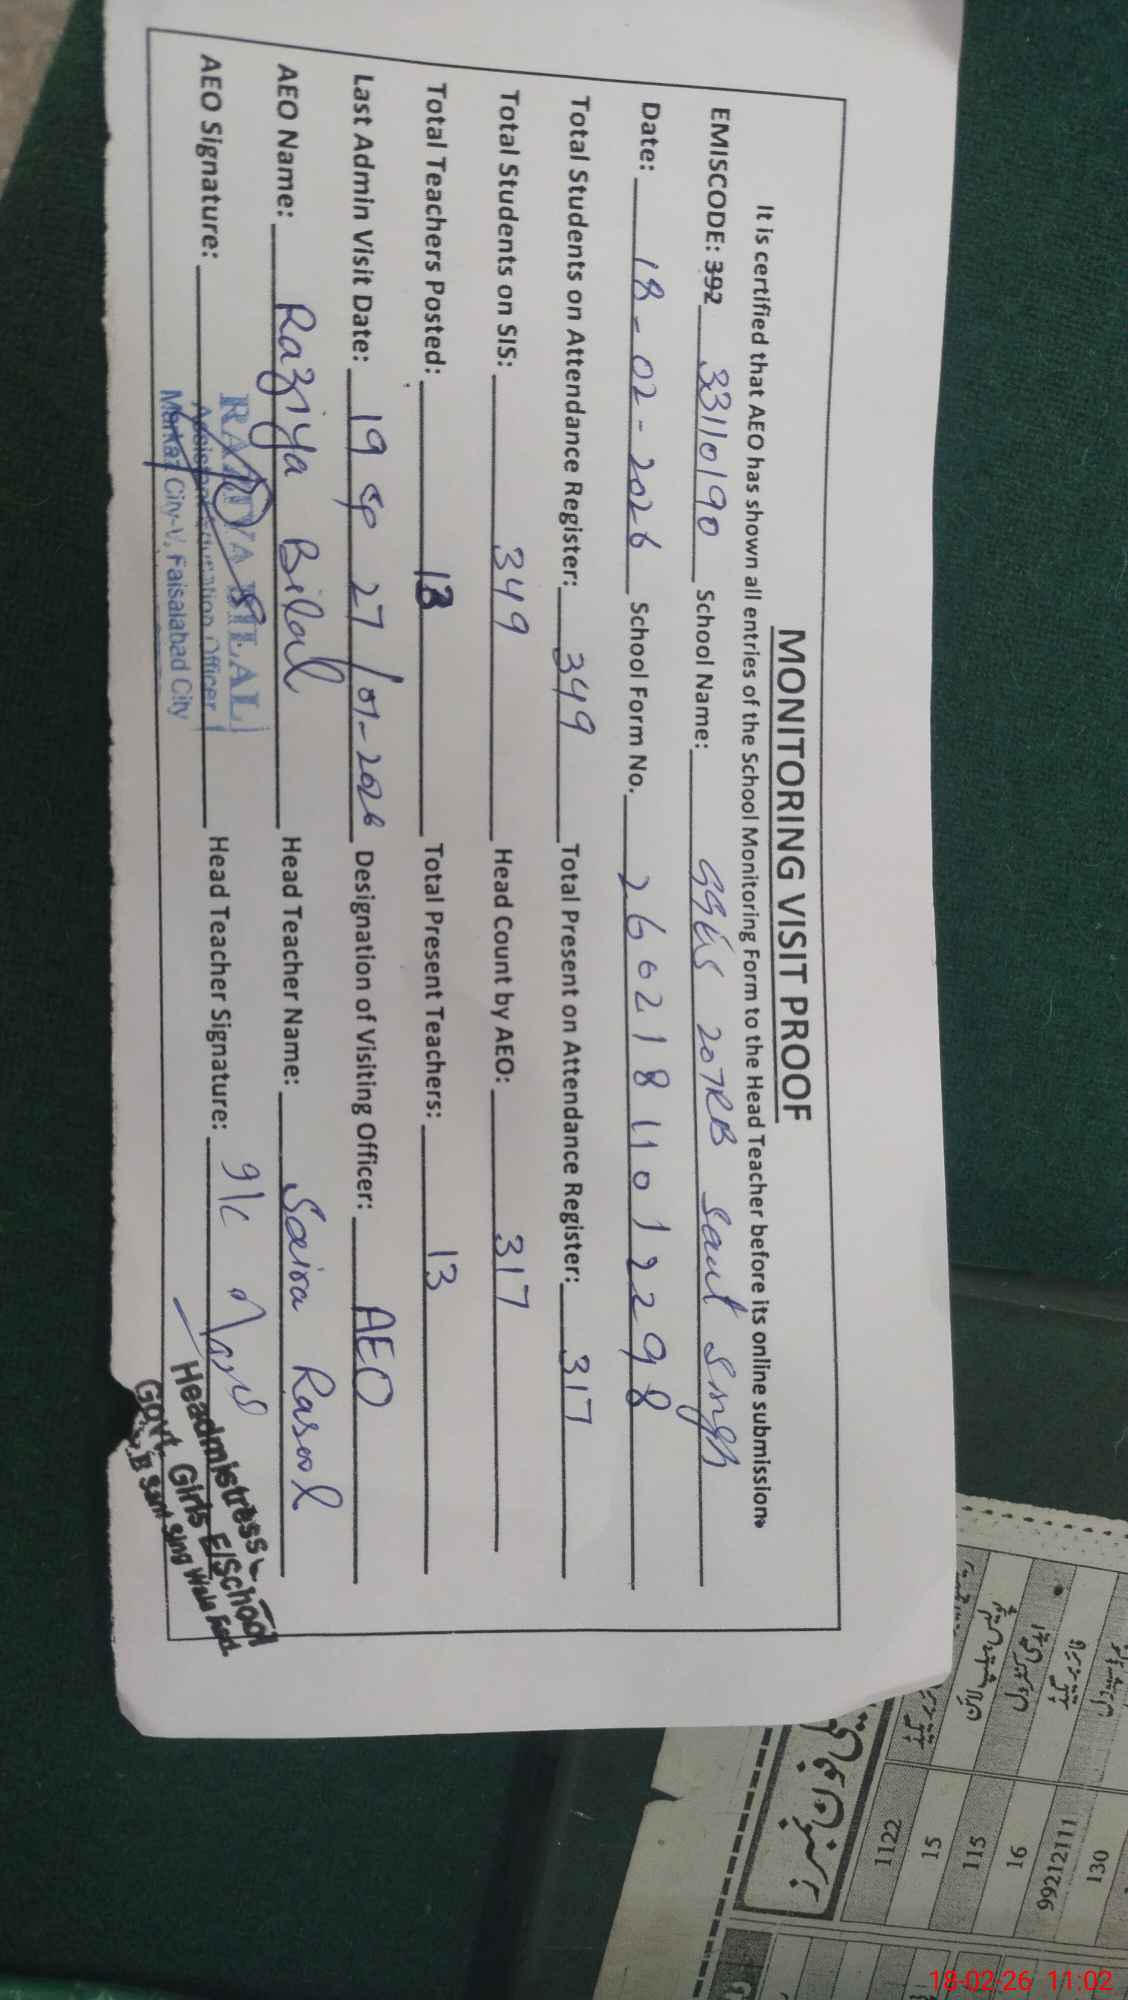 MONITORING VISIT PROOF
It is certified that AEO has shown all entries of the School Monitoring Form to the Head Teacher before its online submission.
EMISCODE: 392 33110190 School Name: GGES 207RB Sant Singh
Date: 18-02-2026 School Form No. 26021811012298
Total Students on Attendance Register: 349 Total Present on Attendance Register: 317
Total Students on SIS: 349 Head Count by AEO: 317
Total Teachers Posted: 13 Total Present Teachers: 13
Last Admin Visit Date: 27/01-2026 Designation of Visiting Officer: AEO
AEO Name: Raziya Bilal Head Teacher Name: Saira Rasool
AEO Signature: Head Teacher Signature:
RAZIYA BILAL
Assistant Education Officer
Markaz City-V, Faisalabad City
Headmistress
Govt. Girls E/School
Sant Sing Wala Fsd.
1122
15
115
16
99212111
130
18-02-26 11:02